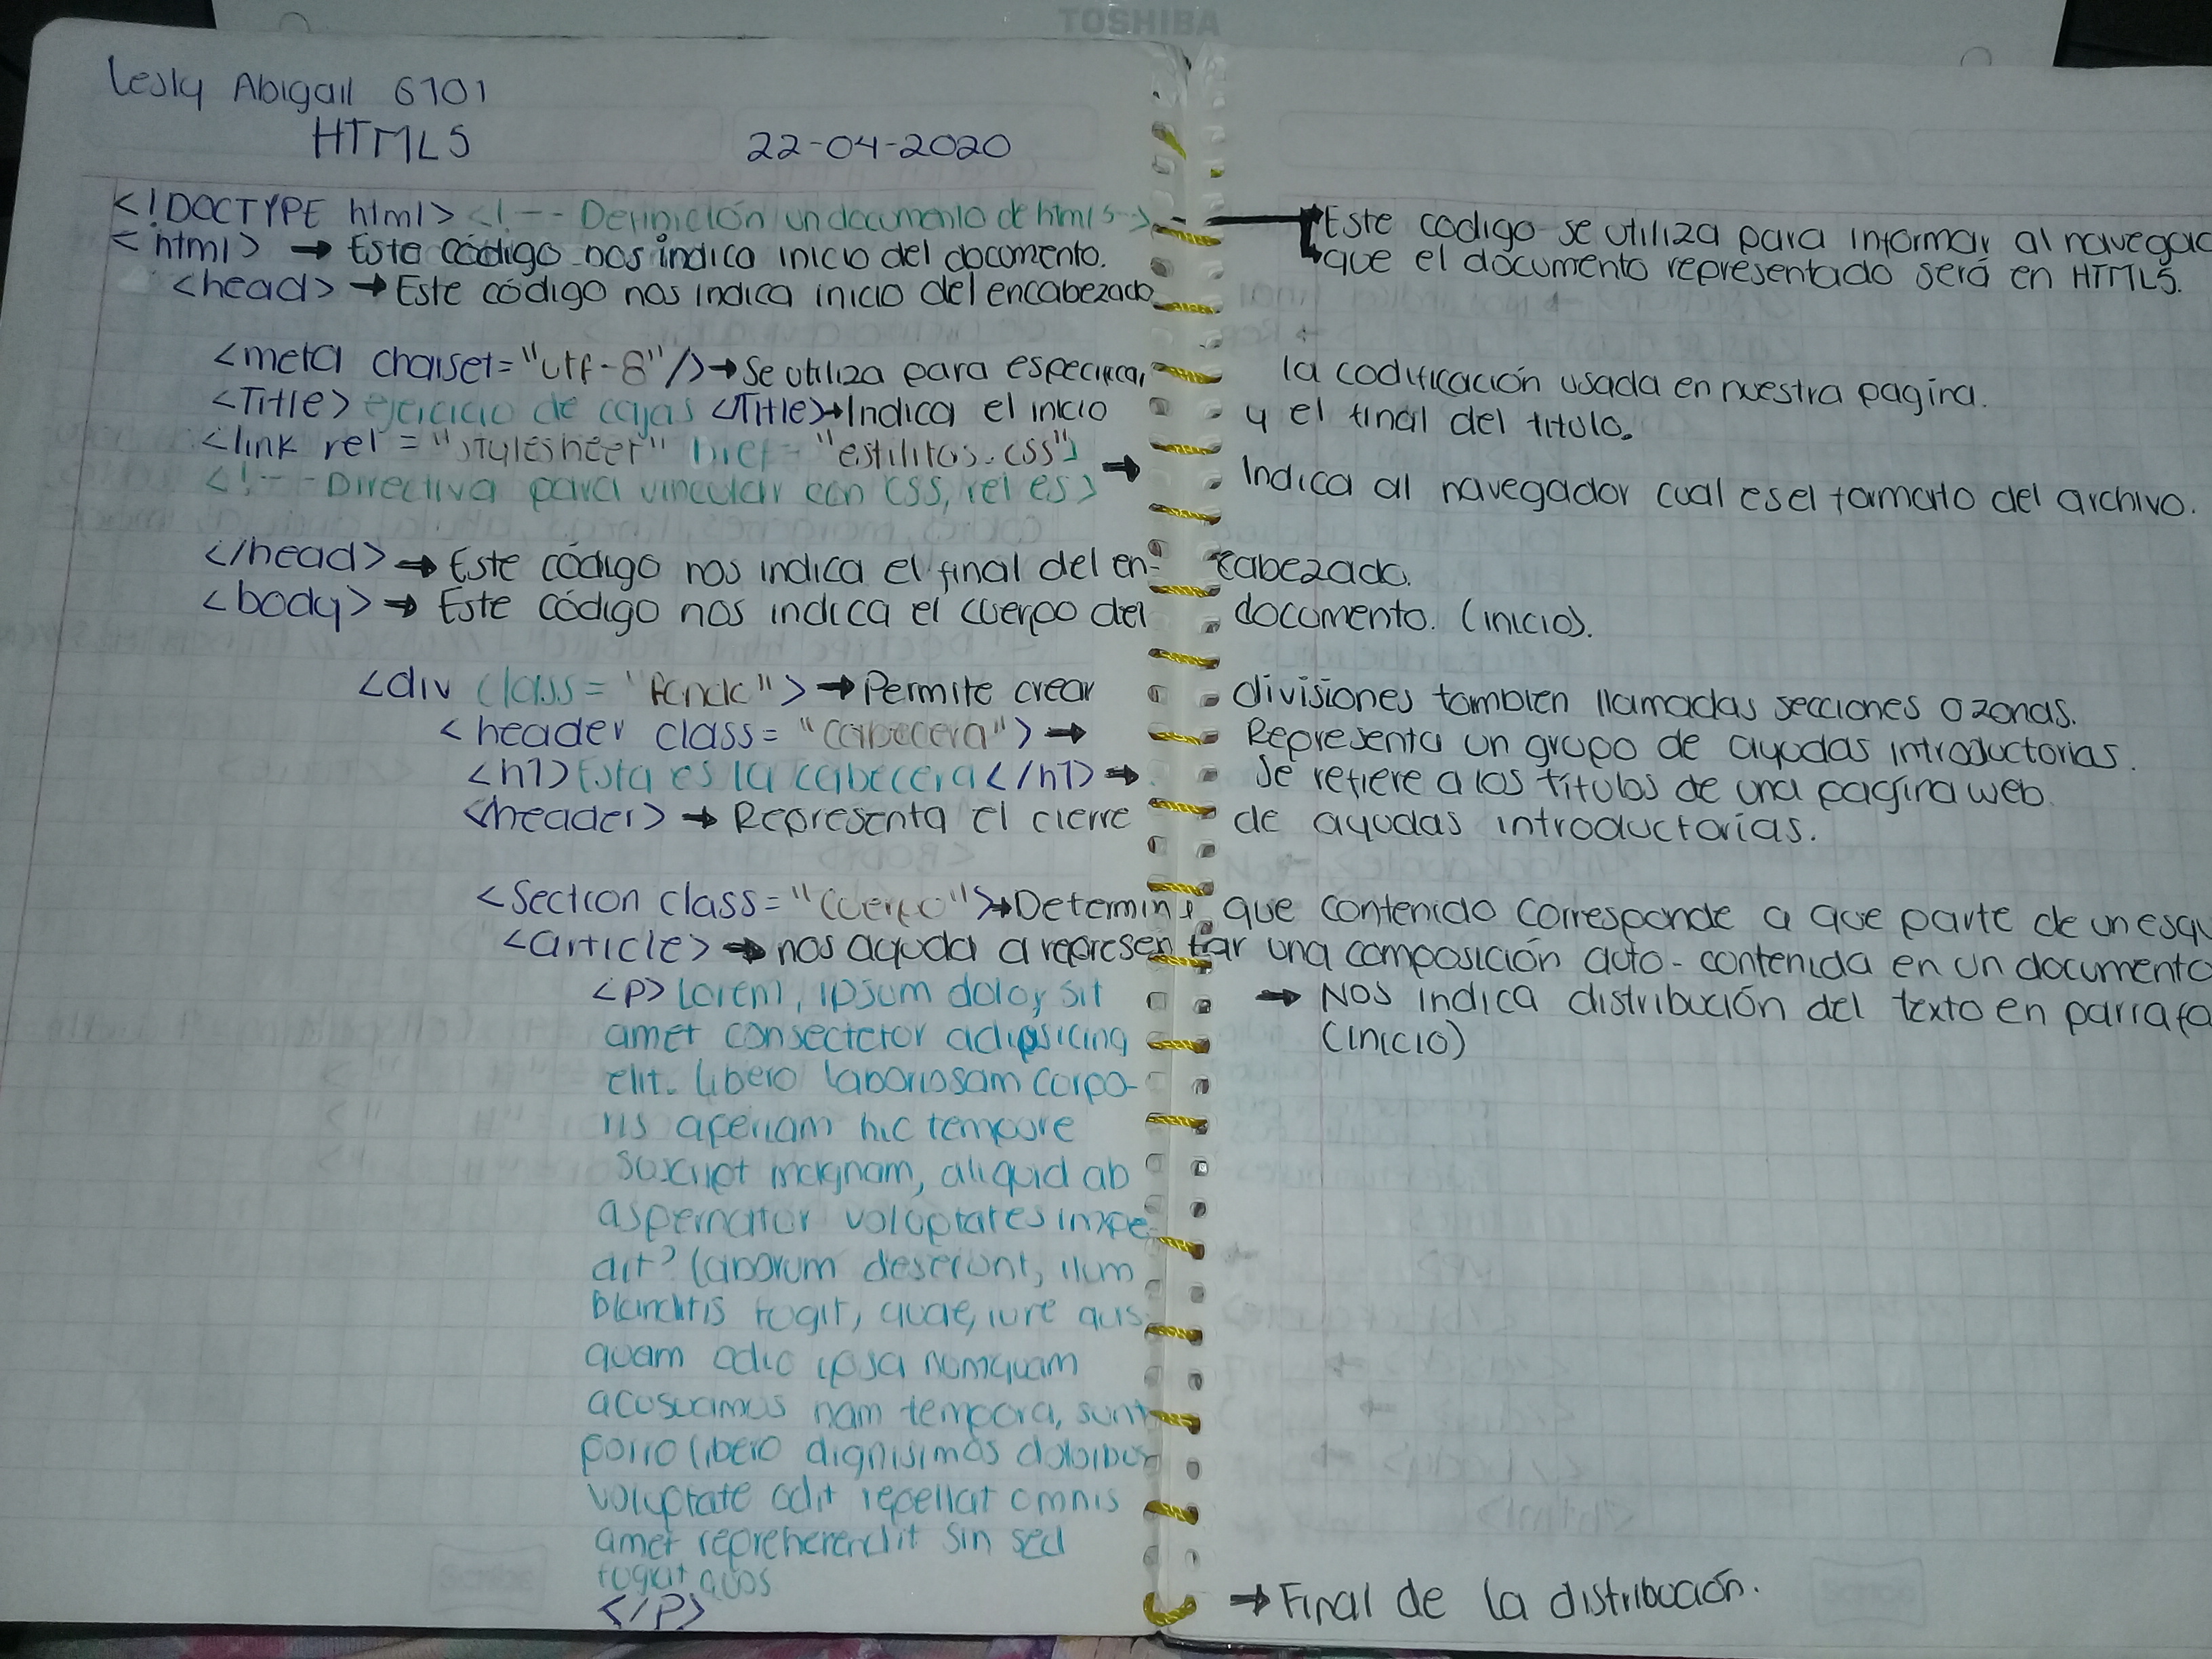 TOSHIBA
Lesly Abigail 6701
HTML5 22-04-2020
<!DOCTYPE html> <!-- Definición un documento de html5--> Este codigo se utiliza para informar al navegad
que el documento representado será en HTML5.
<html> → Este código nos indica inicio del documento.
<head> → Este código nos indica inicio del encabezado
<meta charset="utf-8"/> → Se utiliza para especificar la codificación usada en nuestra pagina.
<Title> ejercicio de cajas </Title> → Indica el inicio y el final del titulo.
<link rel = "stylesheet" href= "estilitos.css">
<!-- Directiva para vincular con CSS, rel es> → Indica al navegador cual es el formato del archivo.
</head> → Este código nos indica el final del en- cabezado.
<body> → Este código nos indica el cuerpo del documento. (inicio).
<div class= > → Permite crear divisiones tambien llamadas secciones o zonas.
<header class= "cabecera"> → Representa un grupo de ayudas introductorias.
<h1> Esta es la cabecera </h1> → Se refiere a los títulos de una pagina web.
</header> → Representa el cierre de ayudas introductorias.
<Section class= "Cuerpo"> → Determina que contenido corresponde a que parte de un esqu
<article> → nos ayuda a representar una composición auto-contenida en un documento
<p> Lorem, ipsum dolor sit → Nos indica distribución del texto en parrafo
amet consectetor adipsicing (inicio)
elit. Libero laboriosam corpo-
ris aperiam hic tempore
suscipt magnam, aliquid ab
aspernatur voluptates impe
dit? Laborum deserunt, illum
blanditis fugit, quae, iure quis
quam odio ipsa numquam
acusucimus nam tempora, sunt
porro libero dignisimos doloribus
voluptate odit repellat omnis
amet repreherendit sin sed
fugiat quos
</p> → Final de la distribución.